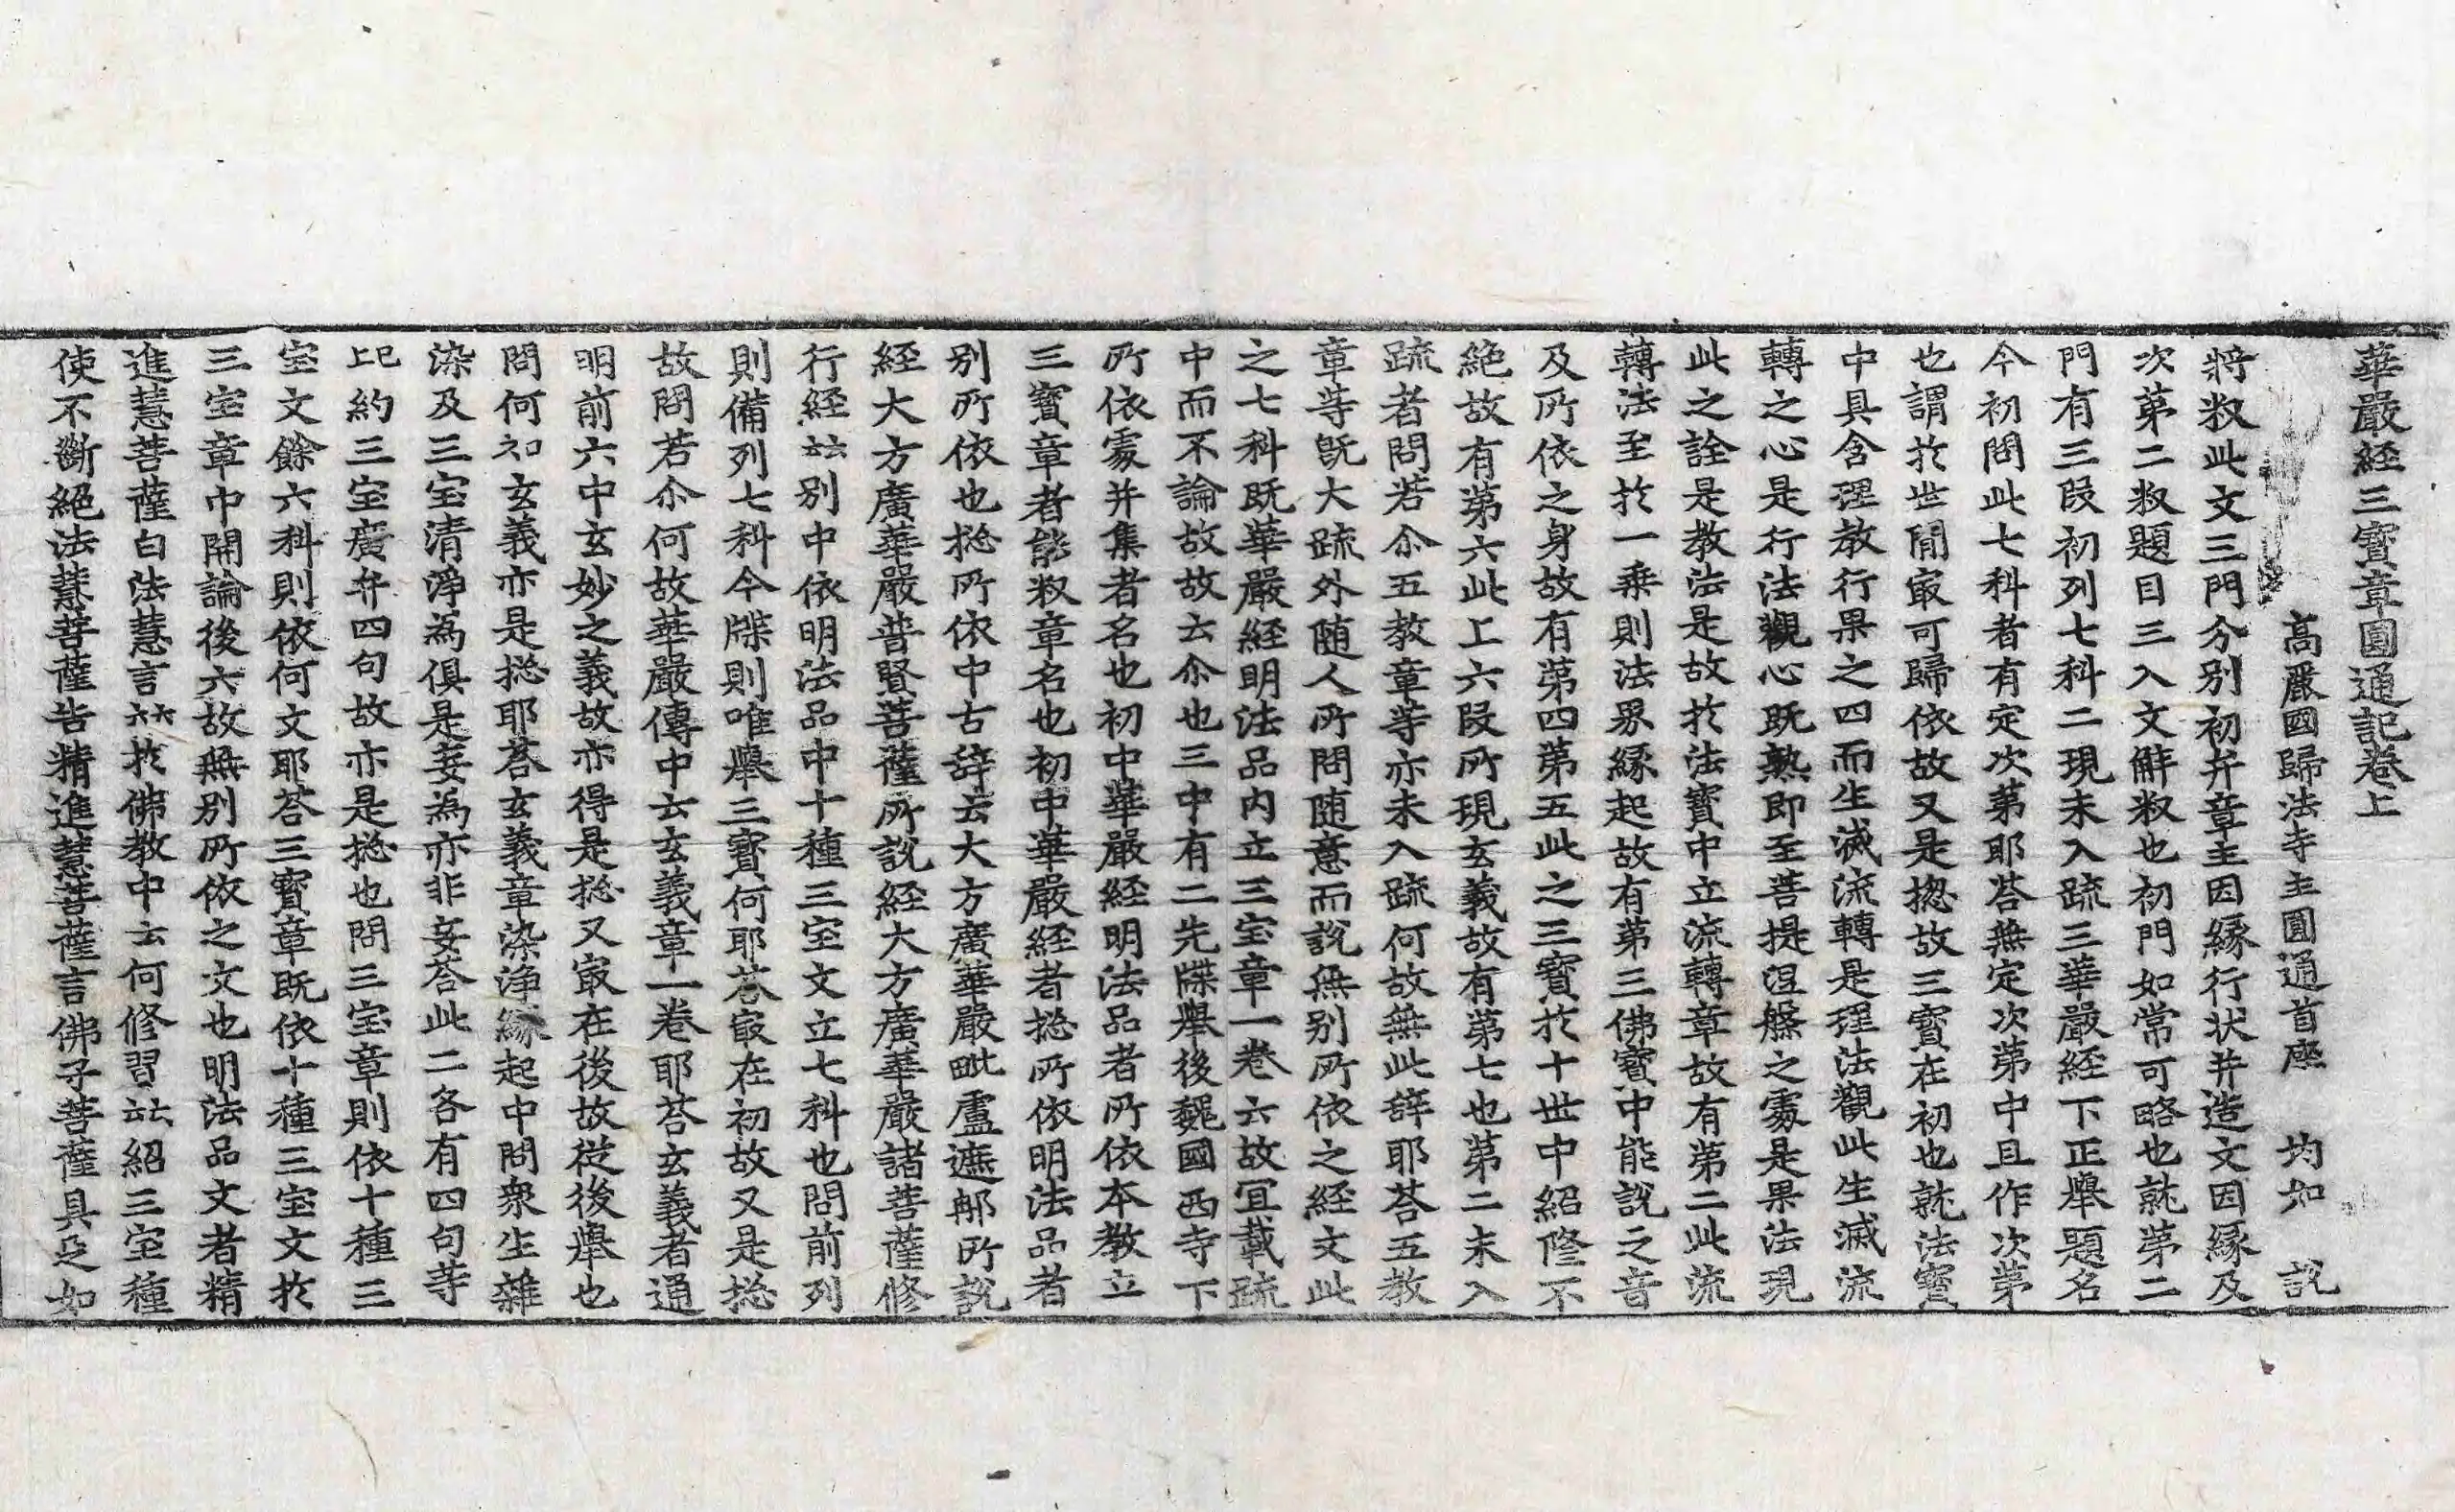 華嚴経三寳章圓通記巻上
高嚴國歸法寺主圓通首座 均如 説
將釈此文三門分別初弁章主因縁行状并造文因縁及
次第二釈題目三入文觧釈也初門如常可略也就第二
門有三段初列七科二現未入䟽三華嚴経下正舉題名
今初問此七科者有定次第耶荅無定次第中且作次第
也謂扵世間㝡可歸依故又是揔故三寳在初也就法寳
中具含理教行果之四而生滅流轉是理法觀此生滅流
轉之心是行法觀心旣熟即至菩提涅槃之䖏是果法現
此之詮是教法是故扵法寳中立流轉章故有第二此流
轉法至扵一乗則法界縁起故有第三佛寳中能説之音
及所依之身故有第四第五此之三寳扵十世中紹隆不
絶故有第六此上六段所現玄義故有第七也第二未入
䟽者問若尒五教章䓁亦未入䟽何故無此辞耶荅五教
章䓁旣大䟽外随人所問随意而説無别所依之経文此
之七科旣華嚴経明法品内立三宝章一巻六故冝載䟽
中而不論故故云尒也三中有二先牒舉後魏國西寺下
所依䖏并集者名也初中華嚴経明法品者所依本教立
三寳章者能釈章名也初中華嚴経者捴所依明法品者
别所依也捴所依中古辞云大方廣華嚴毗盧遮那所説
經大方廣華嚴普賢菩薩所説経大方廣華嚴諸菩薩修
行経云云别中依明法品中十種三宝文立七科也問前列
則備列七科今牒則唯舉三寳何耶荅㝡在初故又是捴
故問若尒何故華嚴傳中云玄義章一巻耶荅玄義者通
明前六中玄妙之義故亦得是捴又㝡在後故従後舉也
問何知玄義亦是捴耶荅玄義章染浄縁起中問衆生雜
染及三宝清淨為俱是妄為亦非妄荅此二各有四句䓁
上巳約三宝廣弁四句故亦是捴也問三宝章則依十種三
宝文餘六科則依何文耶荅三寳章旣依十種三宝文扵
三宝章中開論後六故無别所依之文也明法品文者精
進慧菩薩白法慧言云云扵佛教中云何修習云云紹三宝種
使不断絶法慧菩薩告精進慧菩薩言佛子菩薩具足如